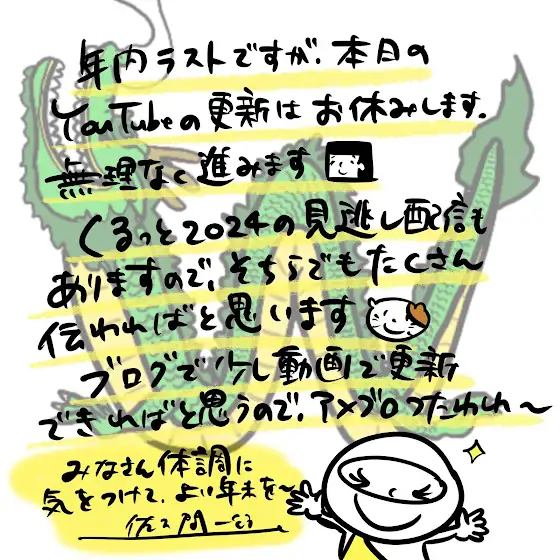 年内ラストですが、本日の
YouTubeの更新はお休みします.
無理なく進みます
くるっと2024の見逃し配信も
ありますので、そちらでもたくさん
伝わればと思います
ブログで少し動画で更新
できればと思うので、アメブロったわしわ〜
みなさん体調に
気をつけて、よい年末を〜